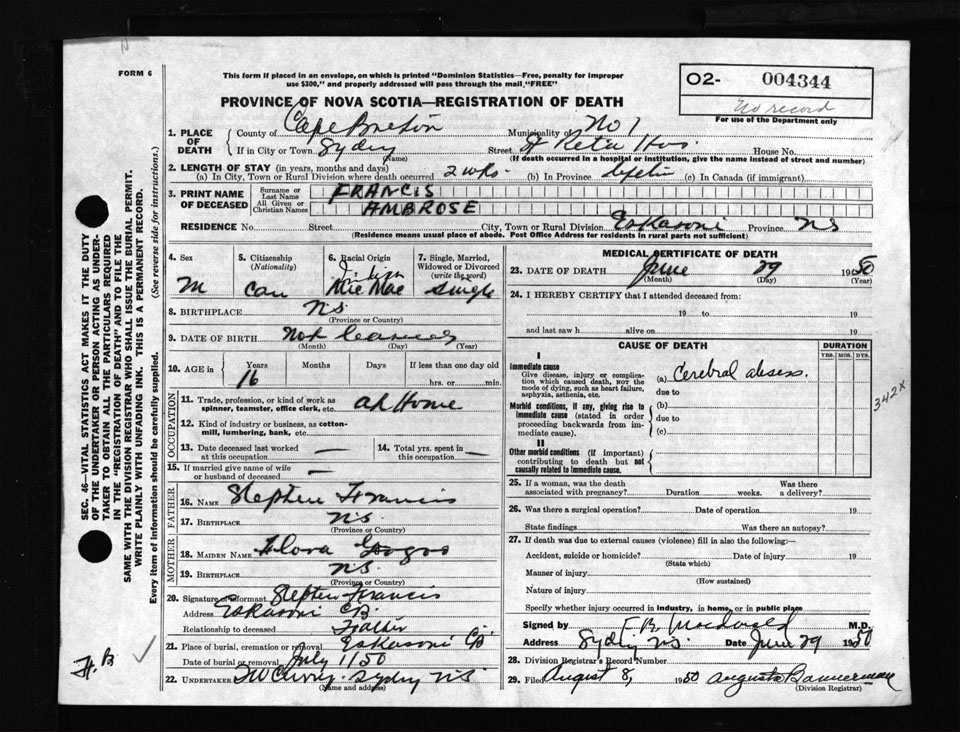 FORM 6
This form if placed in an envelope, on which is printed "Dominion Statistics—Free, penalty for improper
use $300," and properly addressed will pass through the mail "FREE"
O2- 004344
No record
For use of the Department only
PROVINCE OF NOVA SCOTIA—REGISTRATION OF DEATH
1. PLACE OF DEATH
County of Cape Breton Municipality of No 1
If in City or Town Sydney Street St Rita Hos. House No.
(Name) (If death occurred in a hospital or institution, give the name instead of street and number)
2. LENGTH OF STAY (in years, months and days)
(a) In City, Town or Rural Division where death occurred 2 wks. (b) In Province Lifetime (c) In Canada (if immigrant)
3. PRINT NAME OF DECEASED
Surname or Last Name FRANCIS
All Given or Christian Names AMBROSE
RESIDENCE No. Street City, Town or Rural Division Eskasoni Province NS
(Residence means usual place of abode. Post Office Address for residents in rural parts not sufficient)
4. Sex M
5. Citizenship (Nationality) Can
6. Racial Origin Indian Mic Mac
7. Single, Married, Widowed or Divorced (write the word) Single
8. BIRTHPLACE NS
(Province or Country)
9. DATE OF BIRTH Not
(Month) (Day) (Year)
10. AGE in Years 16 Months Days If less than one day old
hrs. or min.
OCCUPATION
11. Trade, profession, or kind of work as
spinner, teamster, office clerk, etc. at Home
12. Kind of industry or business, as cotton-
mill, lumbering, bank, etc.
13. Date deceased last worked
at this occupation —
14. Total yrs. spent in
this occupation —
15. If married give name of wife
or husband of deceased —
FATHER
16. NAME Stephen Francis
17. BIRTHPLACE NS
(Province or Country)
MOTHER
18. MAIDEN NAME Flora Googoo
19. BIRTHPLACE NS.
(Province or Country)
20. Signature of informant Stephen Francis
Address Eskasoni CB.
Relationship to deceased Father
21. Place of burial, cremation or removal Eskasoni CB
Date of burial or removal July 1/50
22. UNDERTAKER T W Curry - Sydney NS
(Name and address)
MEDICAL CERTIFICATE OF DEATH
23. DATE OF DEATH June 29 1950
(Month) (Day) (Year)
24. I HEREBY CERTIFY that I attended deceased from:
19 to 19
and last saw h alive on 19
CAUSE OF DEATH DURATION
YRS. MOS. DYS.
I
Immediate cause
Give disease, injury or complica-
tion which caused death, NOT the
mode of dying, such as heart failure,
asphyxia, asthenia, etc.
(a) Cerebral abscess.
due to
Morbid conditions, if any, giving rise to
immediate cause (stated in order
proceeding backwards from im-
mediate cause).
(b)
due to
(c)
II
Other morbid conditions (if important)
contributing to death but not
causally related to immediate cause.
342X
25. If a woman, was the death
associated with pregnancy? Duration weeks. Was there
a delivery?
26. Was there a surgical operation? Date of operation 19
State findings Was there an autopsy?
27. If death was due to external causes (violence) fill in also the following:—
Accident, suicide or homicide? Date of injury 19
(State which)
Manner of injury
(How sustained)
Nature of injury
Specify whether injury occurred in industry, in home, or in public place
Signed by E. R. Macdonald M.D.
Address Sydney NS Date June 29 1950
28. Division Registrar's Record Number
29. Filed August 8, 1950 Augusta Bannerman
(Division Registrar)
SEC. 46—VITAL STATISTICS ACT MAKES IT THE DUTY
OF THE UNDERTAKER OR PERSON ACTING AS UNDER-
TAKER TO OBTAIN ALL THE PARTICULARS REQUIRED
IN THE "REGISTRATION OF DEATH" AND TO FILE THE
SAME WITH THE DIVISION REGISTRAR WHO SHALL ISSUE THE BURIAL PERMIT.
WRITE PLAINLY WITH UNFADING INK. THIS IS A PERMANENT RECORD.
Every item of information should be carefully supplied. (See reverse side for instructions.)
H.B